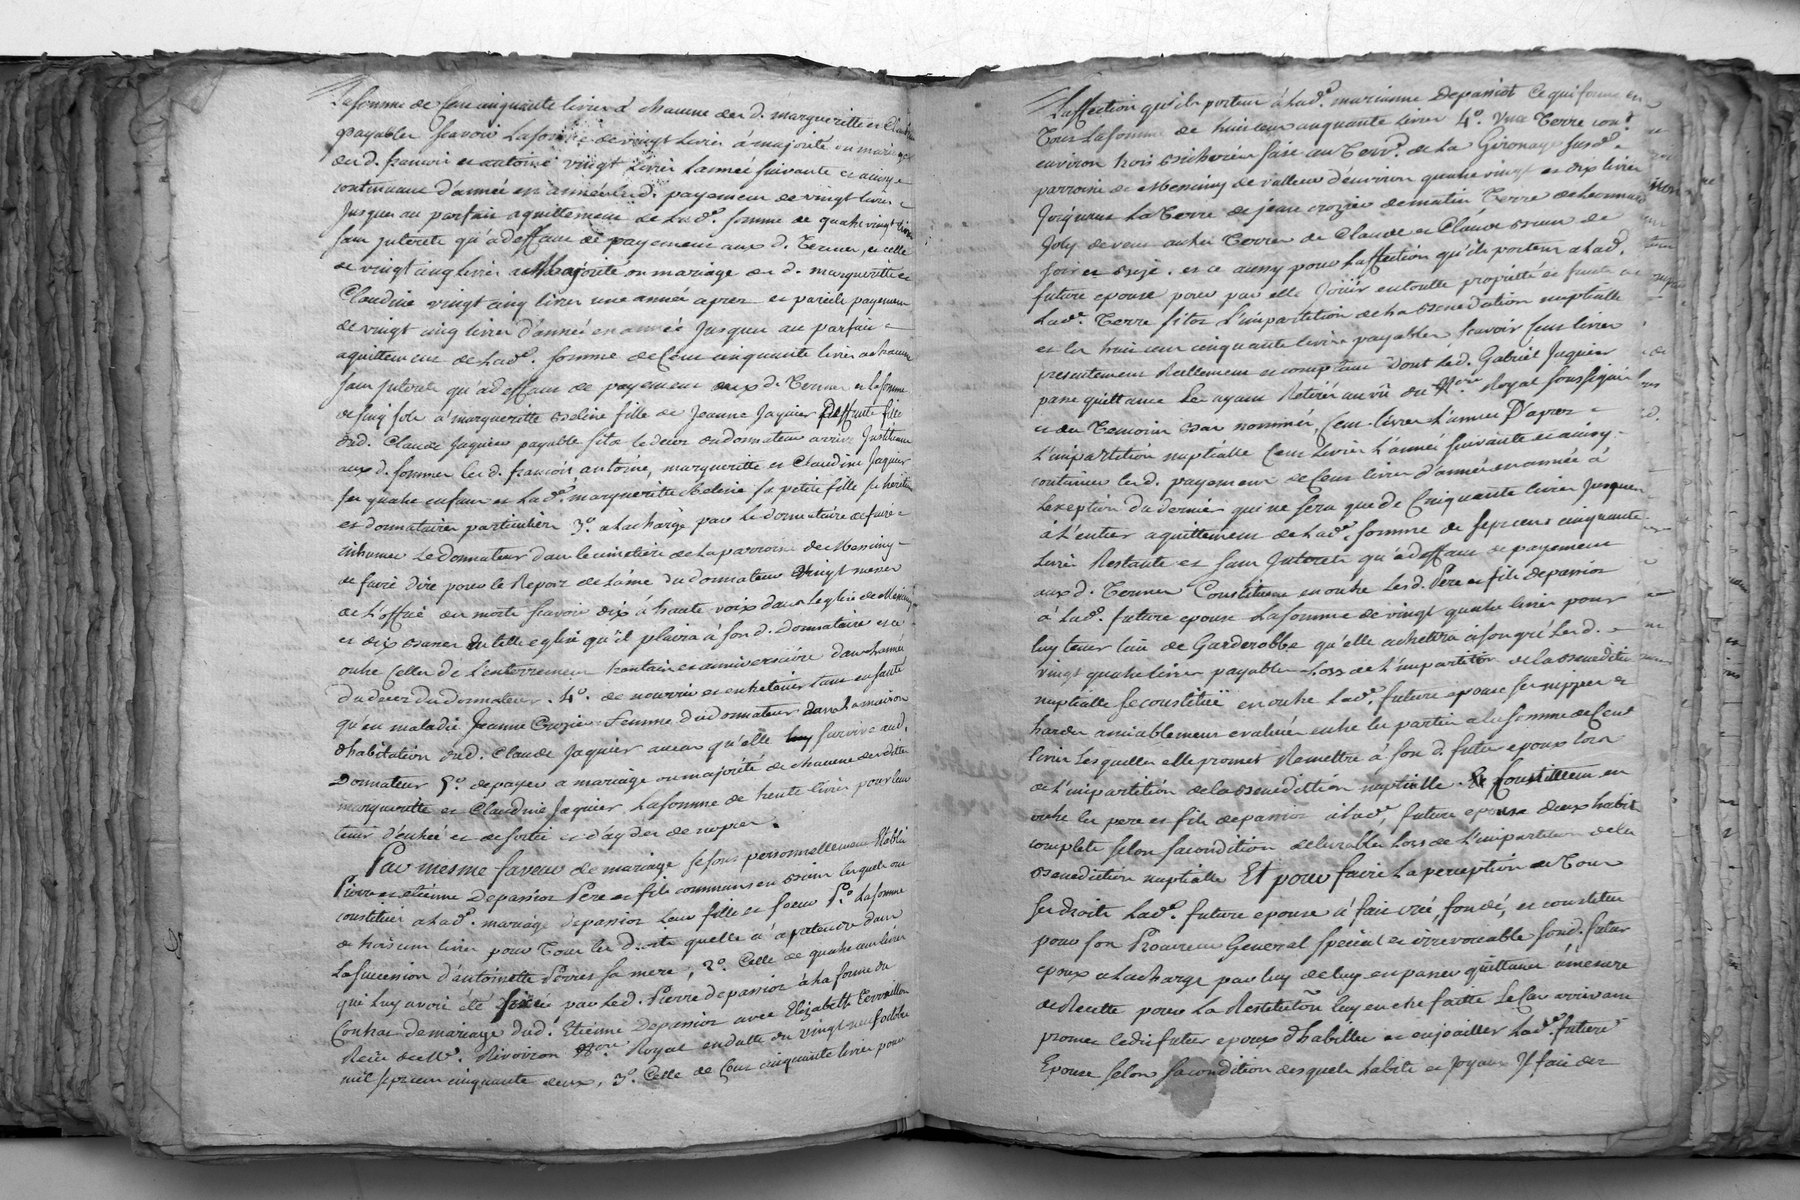 La somme de Cent cinquante livres à chacune des d. margueritte et Claudine
payables scavoir La somme de vingt Livres à majorité ou mariage
des d. francois et antoine vingt Livres L'année suivante et ainsy
continuant d'année en année Led. payement de vingt livres
Jusques au parfait aquittement de Lad.e somme de quatre vingt livres
sans Interets qu'a deffaut de payement aux d. Termes, et celle
de vingt cinq livres à Majorité ou mariage des d. margueritte et
Claudine vingt cinq livres une année apres et pareils payement
de vingt cinq livres d'année en année Jusques au parfait
aquittement de Lad.e somme de Cent cinquante livres a chacune
sans Interets qu'ad effaut de payement aux d. Termes et la somme
de cinq sols à margueritte fille de Jeanne Jaquier Deffunte fille
dud. Claude Jaquier payable sitot le deces du donnateur arrivé Instituant
aux d. sommes les d. francois antoine, margueritte et Claudine Jaquier
ses quatre enfans et Lad.e margueritte sa petite fille ses heritiers
et donnataires particuliers 3.o a la charge par le donnataire de faire
inhumer Le donnateur dans le cimetiere de La parroisse de Messimy
de faire dire pour le Repos de L'ame du donnateur vingt messes
de L'office des morts scavoir dix à haute voix dans Leglise de Messimy
et dix basses en telle eglise qu'il plaira à son d. Donnataire et ce
outre Celles de L'enterrement trentain et anniversaire dans L'année
du deces du donnateur. 4.o de nourrir et entretenir tant en santé
qu'en maladie Jeanne Crozier femme du donnateur dans la maison
d'habitation dud. Claude Jaquier autant qu'elle survivra aud.
Donnateur 5.o de payer a mariage ou majorité de chacune desdittes
margueritte et Claudine Jaquier La somme de trente livres pour leur
tenir d'entrée et de sortie et d'ayder de nopces.
Par mesme faveur de mariage se sont personnellement Etablis
Pierre et etienne Depassiot Pere et fils communs en biens lesquels ont
constitué a Lad.e mariage depassiot leur fille et soeur P.o La somme
de trois cent livres pour Tous les Droits quelle a a pretendre dans
La succession d'antoinette sa mere, 2.o Celle de quatre cent livres
qui Luy avoit eté par Led. Pierre depassiot à la forme du
Contrat de mariage dud. Etienne Depassiot avec Elizabeth
Receu de M.e Rivoiron N.ore Royal en datte du vingt neuf octobre
mil sept cent cinquante deux, 3.o Celle de Cent cinquante livres pour
Laffection qu'ils portent à Lad.e marianne Depassiot ce qui forme en
Tout La somme de huit cent cinquante livres 4.o Une Terre cont.
environ trois bicherées size au Terr.e de La Gironag susd.e
parroisse de Messimy de valleur d'environ quatre vingt et dix livres
Joignant La Terre de jean crozier de matin Terre de Leonnard
Joly de vent autres Terres de Claude et Claude de
soir et bize. et ce aussy pour Laffection qu'ils portent a Lad.
future epouse pour par elle Joüir en toutte proprieté et fruits de
Lad.e Terre sitot L'impartition de La benediction nuptialle
et les huit cent cinquante livres payables scavoir Cent livres
presentement Reellement et comptant Dont Led. Gabriel Jaquier
passe quittance Les ayant Retirés au vü du N.ore Royal soussigné
et des Temoins bas nommés, Cent Livres L'année D'apres
L'impartition nuptialle Cent Livres L'année suivante et ainsy
continuer Led. payement de Cent livres d'année en année à
L'exeption du dernier qui ne sera que de Cinquante livres Jusques
à L'entier aquittement de Lad.e somme de sept cent cinquante
Livres Restante et sans Interets qu'ad effaut de payement
aux d. Termes Constituent en outre Les d. Pere et fils depassiot
à Lad.e future epouse La somme de vingt quatre livres pour
luy tenir Lieu de Garderobbe qu'elle achettera à son gré Les d.
vingt quatre livres payables Lors de L'impartition de la benediction
nuptialle se constitüe en outre Lad.e future epouse ses nippes et
hardes amiablement evaluées entre les parties a la somme de Cent
livres Lesquelles elle promet Remettre à son d. futur epoux lors
de L'impartition de la benediction nuptialle. Constituent en
outre les pere et fils depassiot a Lad.e future epouse deux habits
complets selon sa condition delivrables Lors de L'impartition de la
benediction nuptialle Et pour faire La perception de Tous
ses droits Lad.e future epouse à fait créé, fondé, et constitué
pour son Procureur General special et irrevocable sond. futur
epoux a La charge par luy de luy en passer quittance à mesure
de Recette pour La Restitution luy en etre faitte Le Cas arrivant
promet ledit futur epoux d'habiller et enjoailler Lad.e future
Epouse selon sa condition desquels habits et Joyaux Il fait des